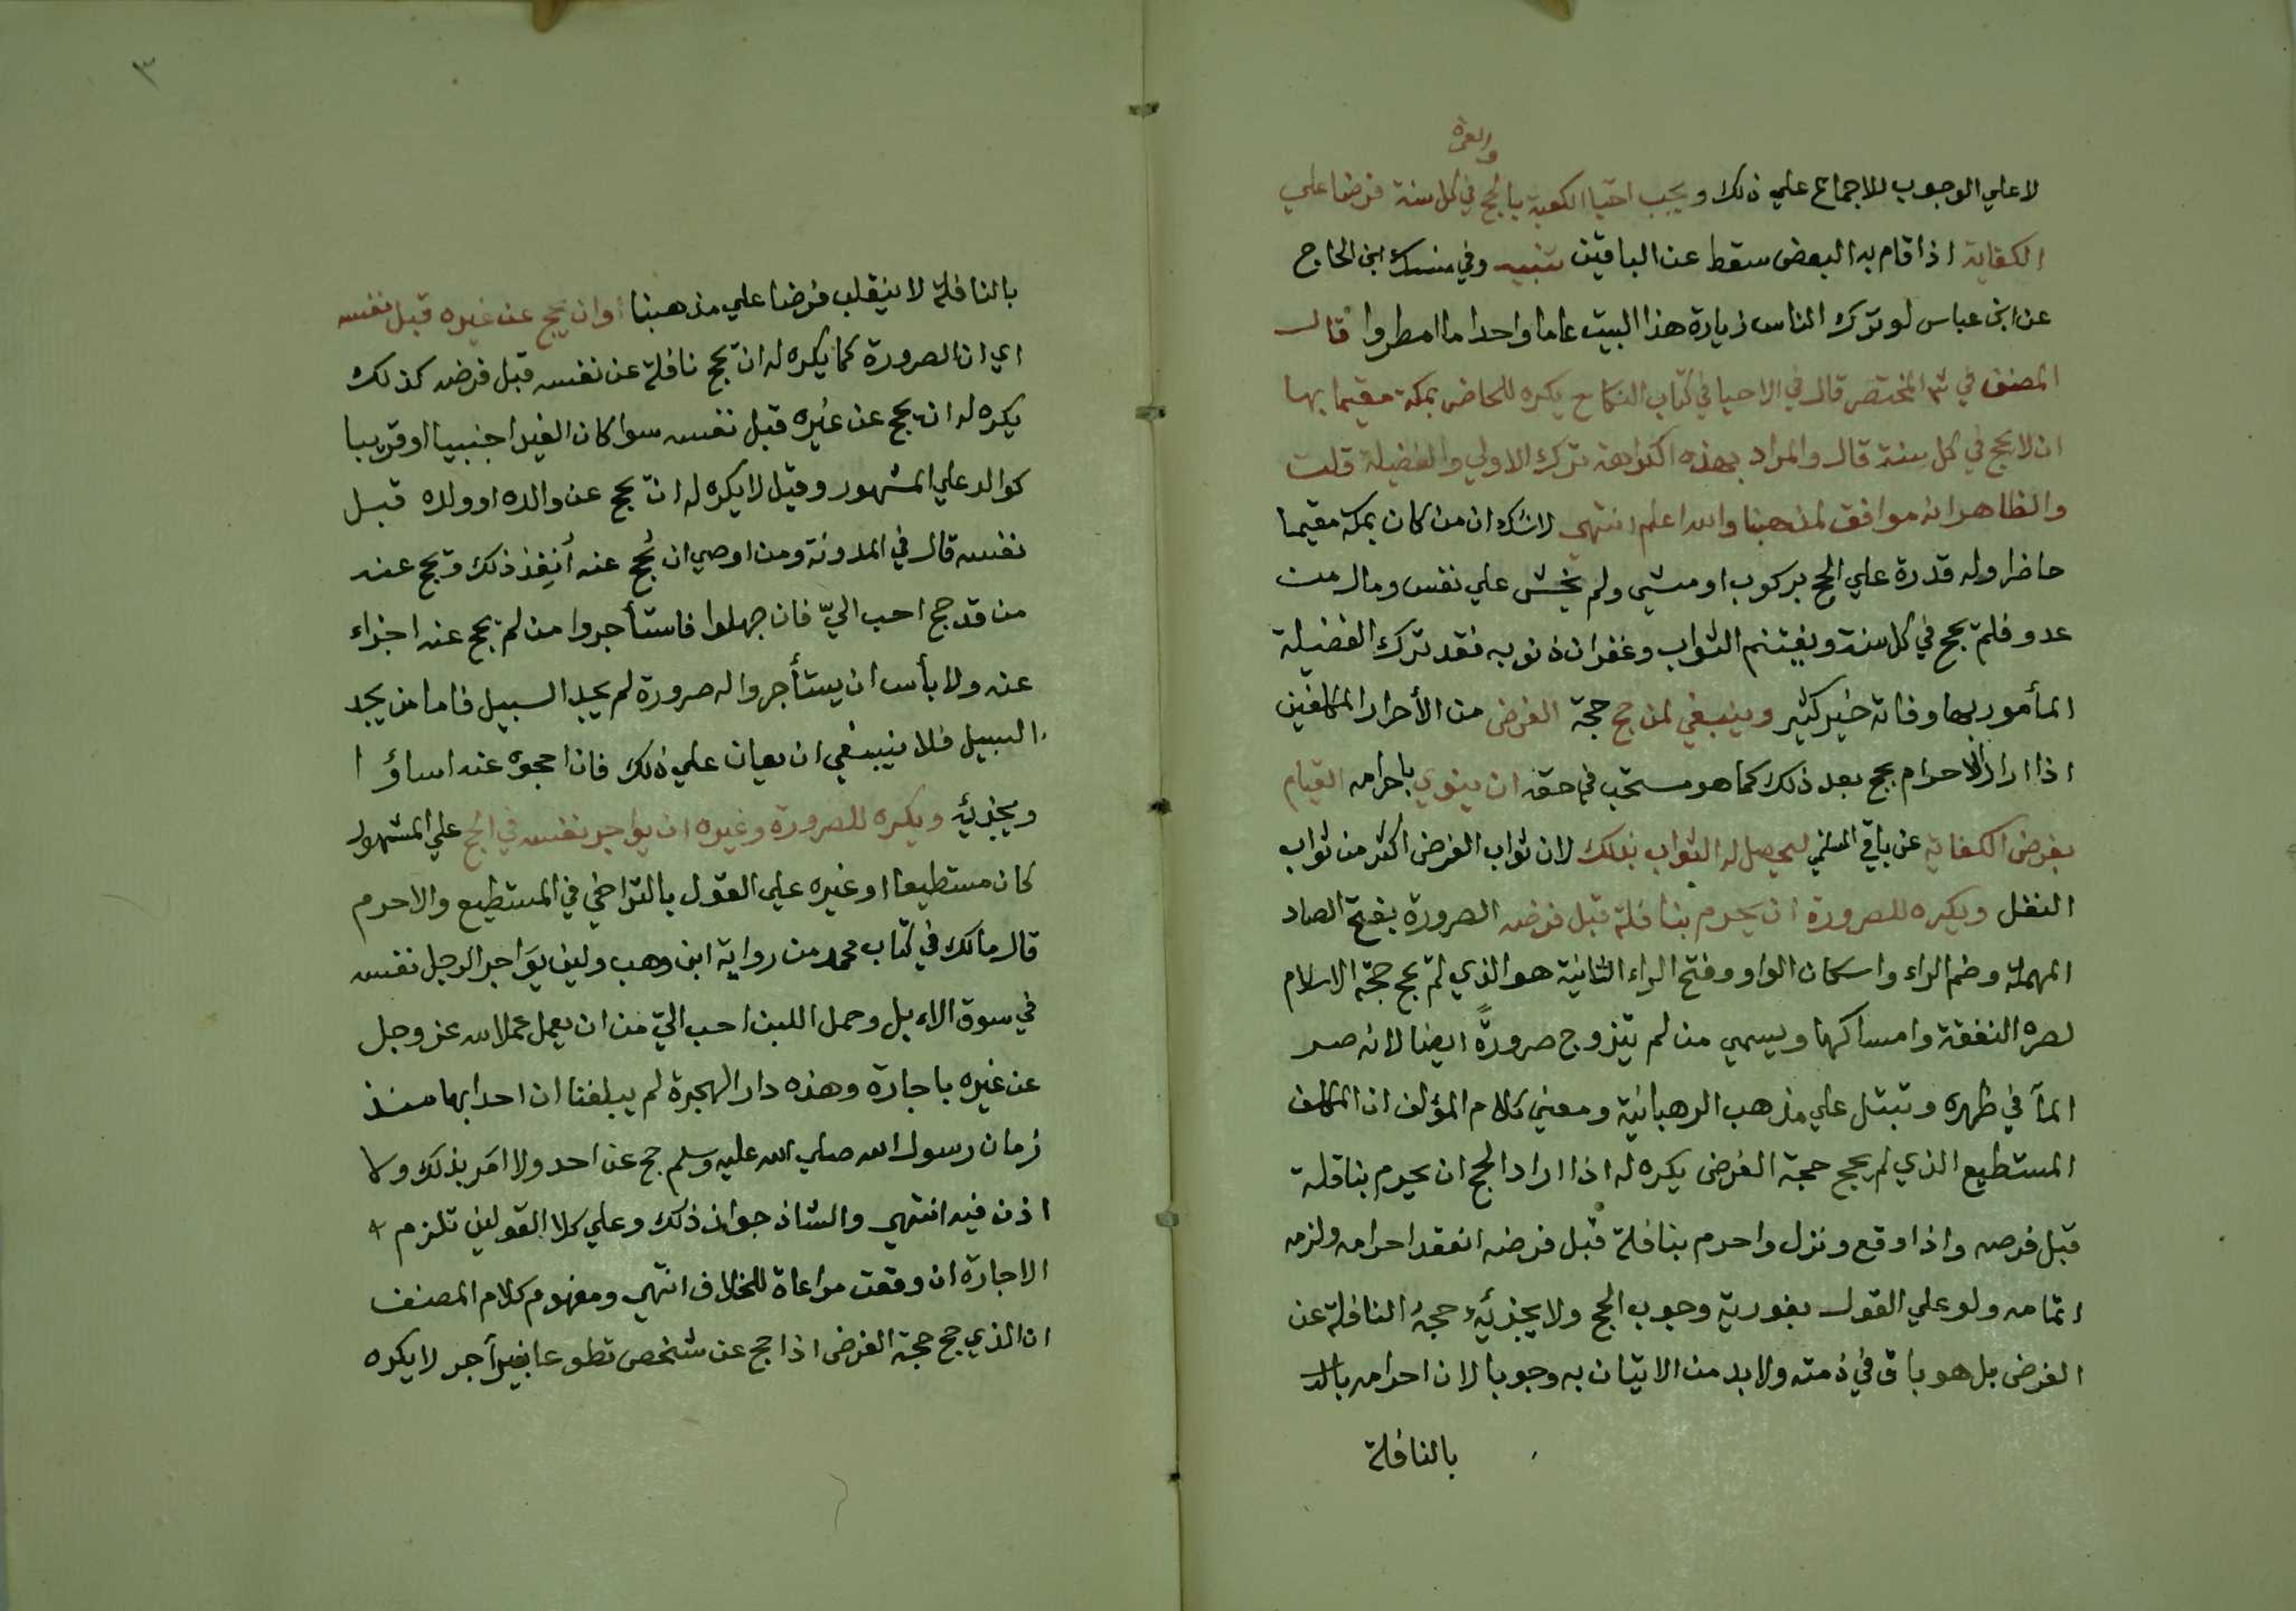 والعمرة
لا علي الوجوب للاجماع علي ذلك ويجب احيا الكعبة بالحج في كل سنة فرضا علي
الكفاية اذا قام به البعض سقط عن الباقين تنبيه وفي منسك ابن الحاج
عن ابن عباس لو ترك الناس زيارة هذا البيت عاما واحدا ما امطروا قال
المصنف في شرح المختصر قال في الاحيا في كتاب النكاح يكره للحاضر بمكة مقيما بها
ان لا يحج في كل سنة قال والمراد بهذه الكراهة ترك الاولي والفضيلة قلت
والظاهر انه موافق لمذهبنا والله اعلم انتهي لاشك ان من كان بمكة مقيما
حاضرا وله قدرة علي الحج بركوب او مشي ولم يخش علي نفس ومال من
عدو فلم يحج في كل سنة ويغتنم الثواب وغفران ذنوبه فقد ترك الفضيلة
المأمور بها وفاته خير كثير وينبغي لمن حج حجة الفرض من الأحرار المكلفين
اذا اراد الاحرام بحج بعد ذلك كما هو مستحب في حقه ان ينوي باحرامه القيام
بفرض الكفاية عن باقي المسلمين ليحصل له الثواب بذلك لان ثواب الفرض اكثر من ثواب
النفل ويكره للصرورة ان يحرم بنافلة قبل فرضه الصرورة بفتح الصاد
المهملة وضم الراء واسكان الواو وفتح الراء الثانية هو الذي لم يحج حجة الاسلام
لصره النفقة وامساكها ويسمي من لم يتزوج صرورةً ايضا لانه صر
المآ في ظهره وتبتل علي مذهب الرهبانية ومعني كلام المؤلف ان المكلف
المستطيع الذي لم يحج حجة الفرض يكره له اذا اراد الحج ان يحرم بنافلة
قبل فرصه واذا وقع ونزل واحرم بنافلة قبل فرضه انعقد احرامه ولزمه
اتمامه ولو علي القول بفورية وجوب الحج ولا يجزئه حجة النافلة عن
الفرض بل هو باق في ذمته ولا بد من الاتيان به وجوبا لان احرامه
بالنافلة
٣
بالنافلة لا ينقلب فرضا علي مذهبنا اوان يحج عن غيره قبل نفسه
اي ان الصرورة كما يكره له ان يحج نافلة عن نفسه قبل فرضه كذلك
يكره له ان يحج عن غيره قبل نفسه سوا كان الغير اجنبيا او قريبا
كوالد علي المشهور وقيل لا يكره له ان يحج عن والده او ولده قبل
نفسه قال في المدونة ومن اوصي ان يُحج عنه أنفذ ذلك ويحج عنه
من قد حج احب اليّ فان جهلوا فاستأجروا من لم يحج عنه اجزاء
عنه ولا بأس ان يستأجروا له صرورة لم يجد السبيل فاما من يجد
السبيل فلا ينبغي ان يعان علي ذلك فان احجوه عنه اساؤا
ويجزئه ويكره للصرورة وغيره ان يؤاجر نفسه في الحج علي المشهور
كان مستطيعا او غيره علي القول بالتراخي في المستطيع والاحرم
قال مالك في كتاب محمد من رواية ابن وهب ولين يؤاجر الرجل نفسه
في سوق الابل وحمل اللبن احب اليّ من ان يعمل عملا لله عز وجل
عن غيره باجارة وهذه دار الهجرة لم يبلغنا ان احدا بها منذ
زمان رسول الله صلي الله عليه وسلم حج عن احد ولا امر بذلك ولا
اذن فيه انتهي والشاذ جواز ذلك وعلي كلا القولين تلزم
الاجارة ان وقعت مراعاة للخلاف انتهي ومفهوم كلام المصنف
ان الذي حج حجة الفرض اذا حج عن شخص تطوعا بغير أجر لا يكره